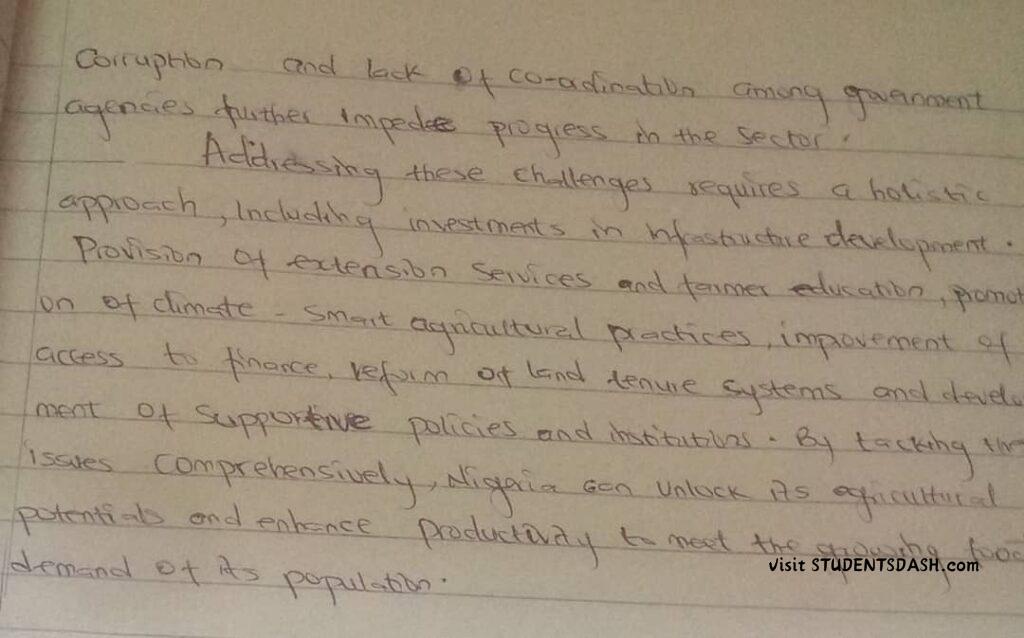 Corruption and lack of co-ordination among government
agencies further impede progress in the sector.
Addressing these challenges requires a holistic
approach, including investments in infrastructure development.
Provision of extension services and farmer education, promot
on of climate - smart agricultural practices, improvement of
access to finance, reform of land tenure systems and develo
ment of supportive policies and institutions. By tacking the
issues comprehensively, Nigeria can unlock its agricultural
potentials and enhance productivity to meet the growing food
demand of its population.
Visit STUDENTSDASH.com